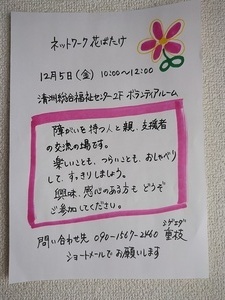 ネットワーク 花ばたけ
12月5日(金) 10:00〜12:00
清洲総合福祉センター2F ボランティアルーム
障がいを持つ人と親、支援者
の交流の場です。
楽しいことも、つらいことも、おしゃべり
して、すっきりしましょう。
興味、関心のある方も どうぞ
ご参加してください。
問い合わせ先 090-1567-2460 重枝
シゲエダ
ショートメールでお願いします